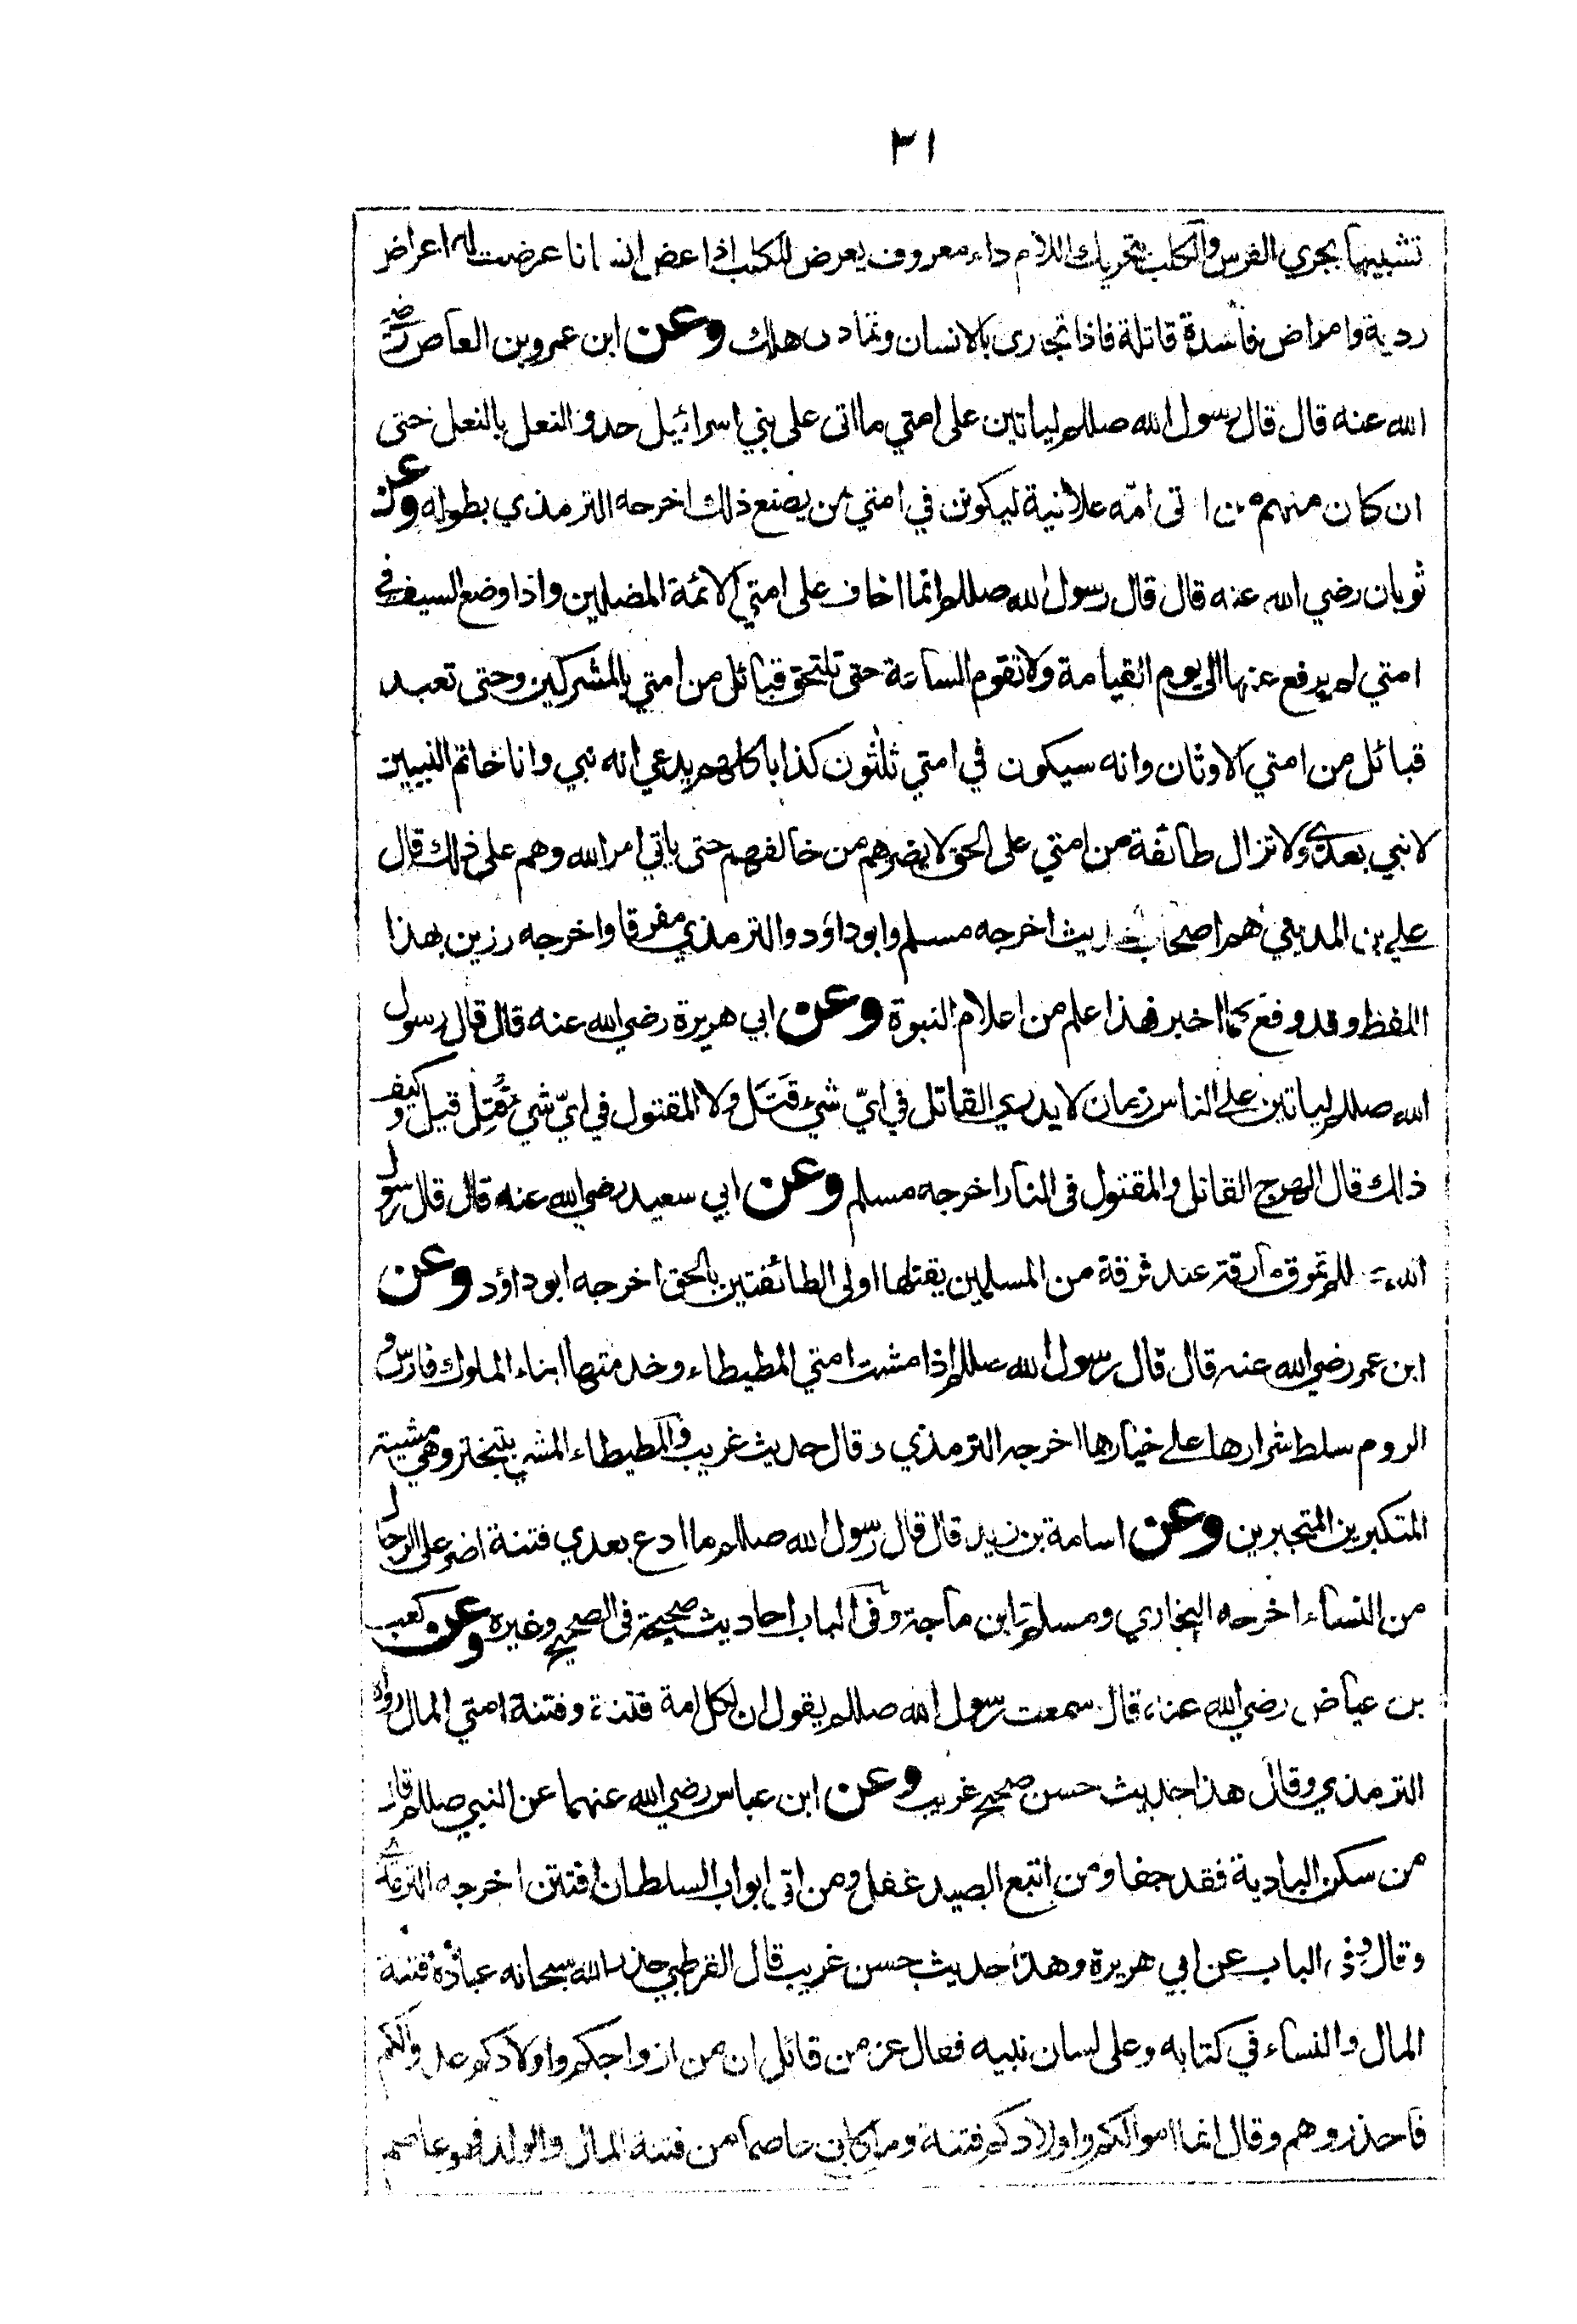 ٣١
تشبيها بجري الفرس والكلب بتحريك اللام داء معروف يعرض للكلب اذا عض انسانا عرضت له اعراض
ردية وامراض فاسدة قاتلة فاذا تجارى بالانسان وتمادى هلك وعن ابن عمرو بن العاص رضي
الله عنه قال قال رسول الله صللم لياتين على امتي ما اتى على بني اسرائيل حدو النعل بالنعل حتى
ان كان منهم من اتى امّه علانية ليكونن في امتي من يصنع ذلك اخرجه الترمذي بطوله وعن
ثوبان رضي الله عنه قال قال رسول الله صللم انما اخاف على امتي الائمة المضلين واذا وضع السيف في
امتي لم يرفع عنها الى يوم القيامة ولا تقوم الساعة حتى تلتحق قبائل من امتي بالمشركين وحتى تعبد
قبائل من امتي الاوثان وانه سيكون في امتي ثلثون كذابا كلهم يدعي انه نبي وانا خاتم النبيين
لا نبي بعدي ولا تزال طائفة من امتي على الحق لا يضرهم من خالفهم حتى ياتي امر الله وهم على ذلك قال
علي بن المديني هم اصحاب حديث اخرجه مسلم وابو داؤد والترمذي مفرقا واخرجه رزين بهذا
اللفظ وقد وقع كما اخبر فهذا علم من اعلام النبوة وعن ابي هريرة رضي الله عنه قال قال رسول
الله صللم لياتين على الناس زمان لا يدري القاتل في ايّ شيء قَتَل ولا المقتول في ايّ شيء قُتِل قيل وكيف
ذلك قال الهرج القاتل والمقتول في النار اخرجه مسلم وعن ابي سعيد رضي الله عنه قال قال رسول
الله صللم تمرق مارقة عند فرقة من المسلمين يقتلها اولى الطائفتين بالحق اخرجه ابو داؤد وعن
ابن عمر رضي الله عنه قال قال رسول الله صللم اذا مشت امتي المطيطاء وخدمتها ابناء الملوك فارس و
الروم سلط شرارها على خيارها اخرجه الترمذي وقال حديث غريب والمطيطاء المشي بتبختر وهي مشية
المتكبرين المتجبرين وعن اسامة بن زيد قال قال رسول الله صللم ما ادع بعدي فتنة اضر على الرجال
من النساء اخرجه البخاري ومسلم وابن ماجة وفي الباب احاديث صحيحة في الصحيح وغيره وعن كعب
بن عياض رضي الله عنه قال سمعت رسول الله صللم يقول ان لكل امة فتنة وفتنة امتي المال رواه
الترمذي وقال هذا حديث حسن صحيح غريب وعن ابن عباس رضي الله عنهما عن النبي صللم قال
من سكن البادية فقد جفا ومن اتبع الصيد غفل ومن اتى ابواب السلطان افتتن اخرجه الترمذي
وقال وفي الباب عن ابي هريرة وهذا حديث حسن غريب قال القرطبي حذر الله سبحانه عباده فتنة
المال والنساء في كتابه وعلى لسان نبيه فقال عز من قائل ان من ازواجكم واولادكم عدوا لكم
فاحذروهم وقال انما اموالكم واولادكم فتنة وما كان عاصما من فتنة المال والولد فهو عاصم